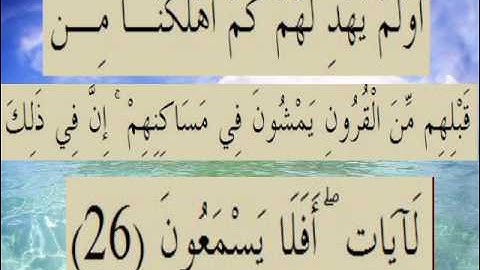 أَوَلَمْ يَهْدِ لَهُمْ كَمْ أَهْلَكْنَــا مِــن
قَبْلِهِم مِّنَ الْقُرُونِ يَمْشُونَ فِي مَسَاكِنِهِمْ ۚ إِنَّ فِي ذَٰلِكَ
لَآيَات ۖ أَفَلَا يَسْمَعُونَ (26)